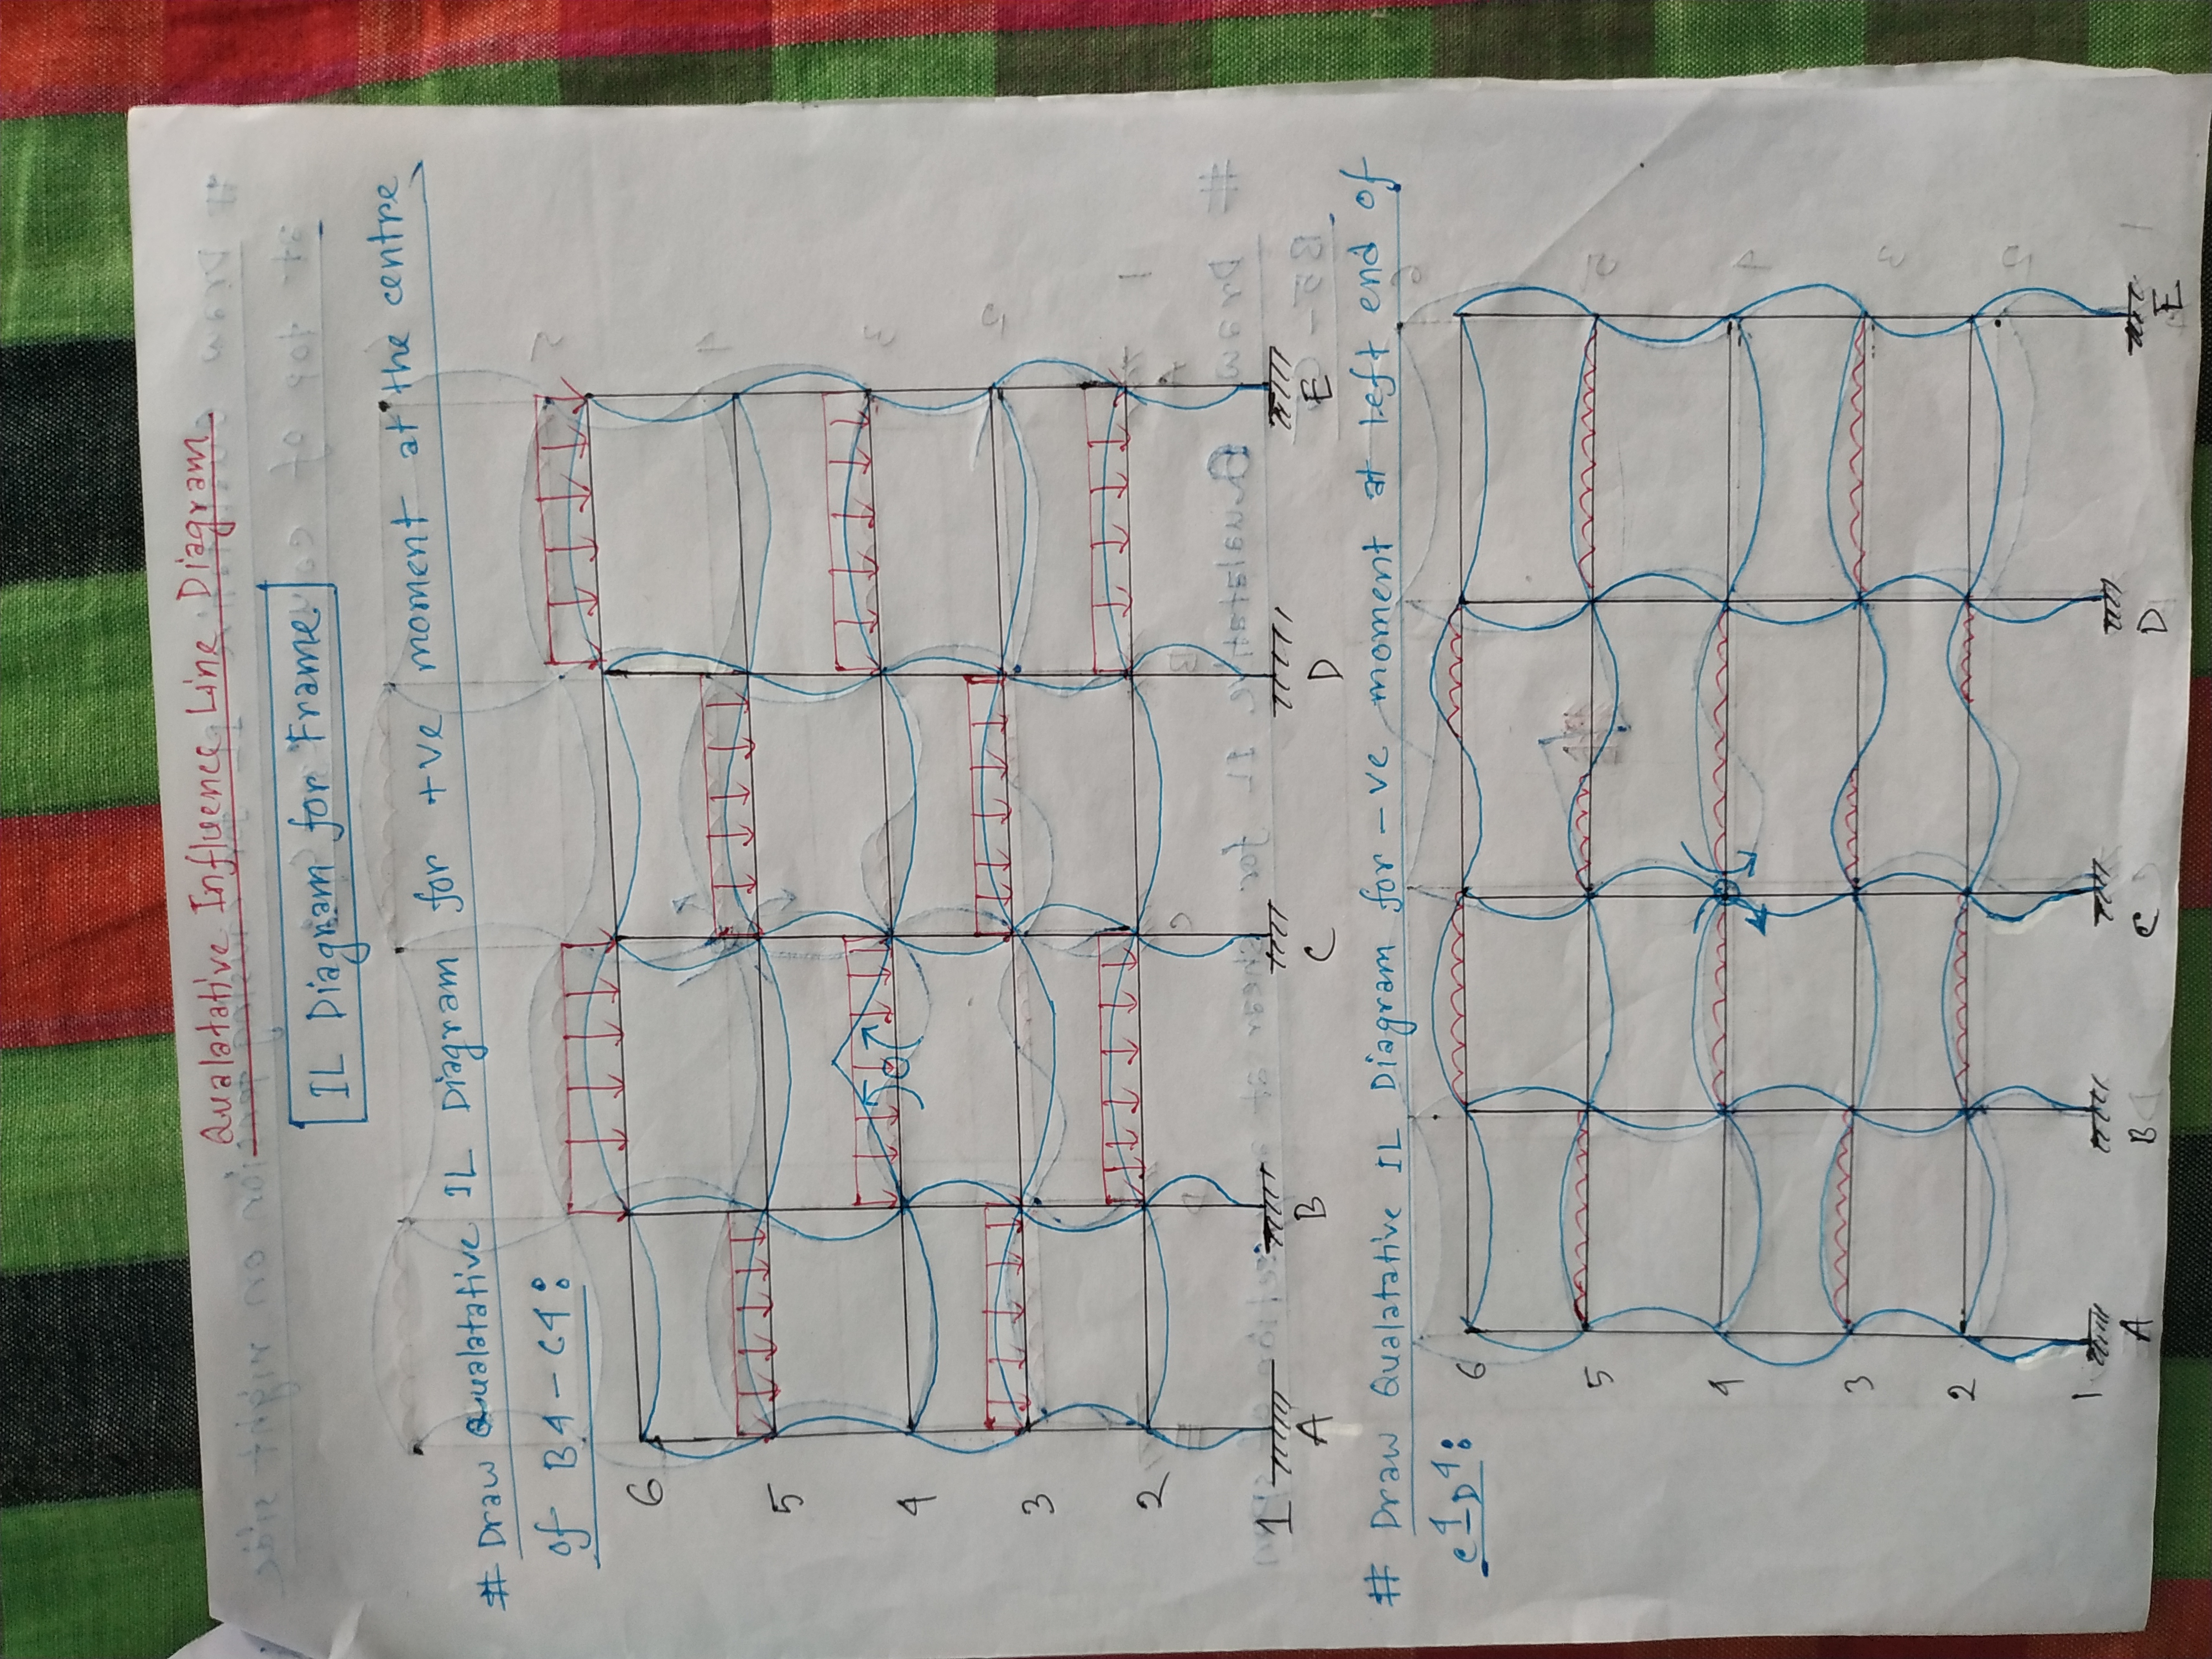 Qualatative Influence Line Diagram
IL Diagram for Frame
# Draw Qualatative IL Diagram for +ve moment at the centre
of B4-C4:
6
5
4
3
2
1
A B C D E
# Draw Qualatative IL Diagram for -ve moment at left end of
C4-D4:
6
5
4
3
2
1
A B C D E